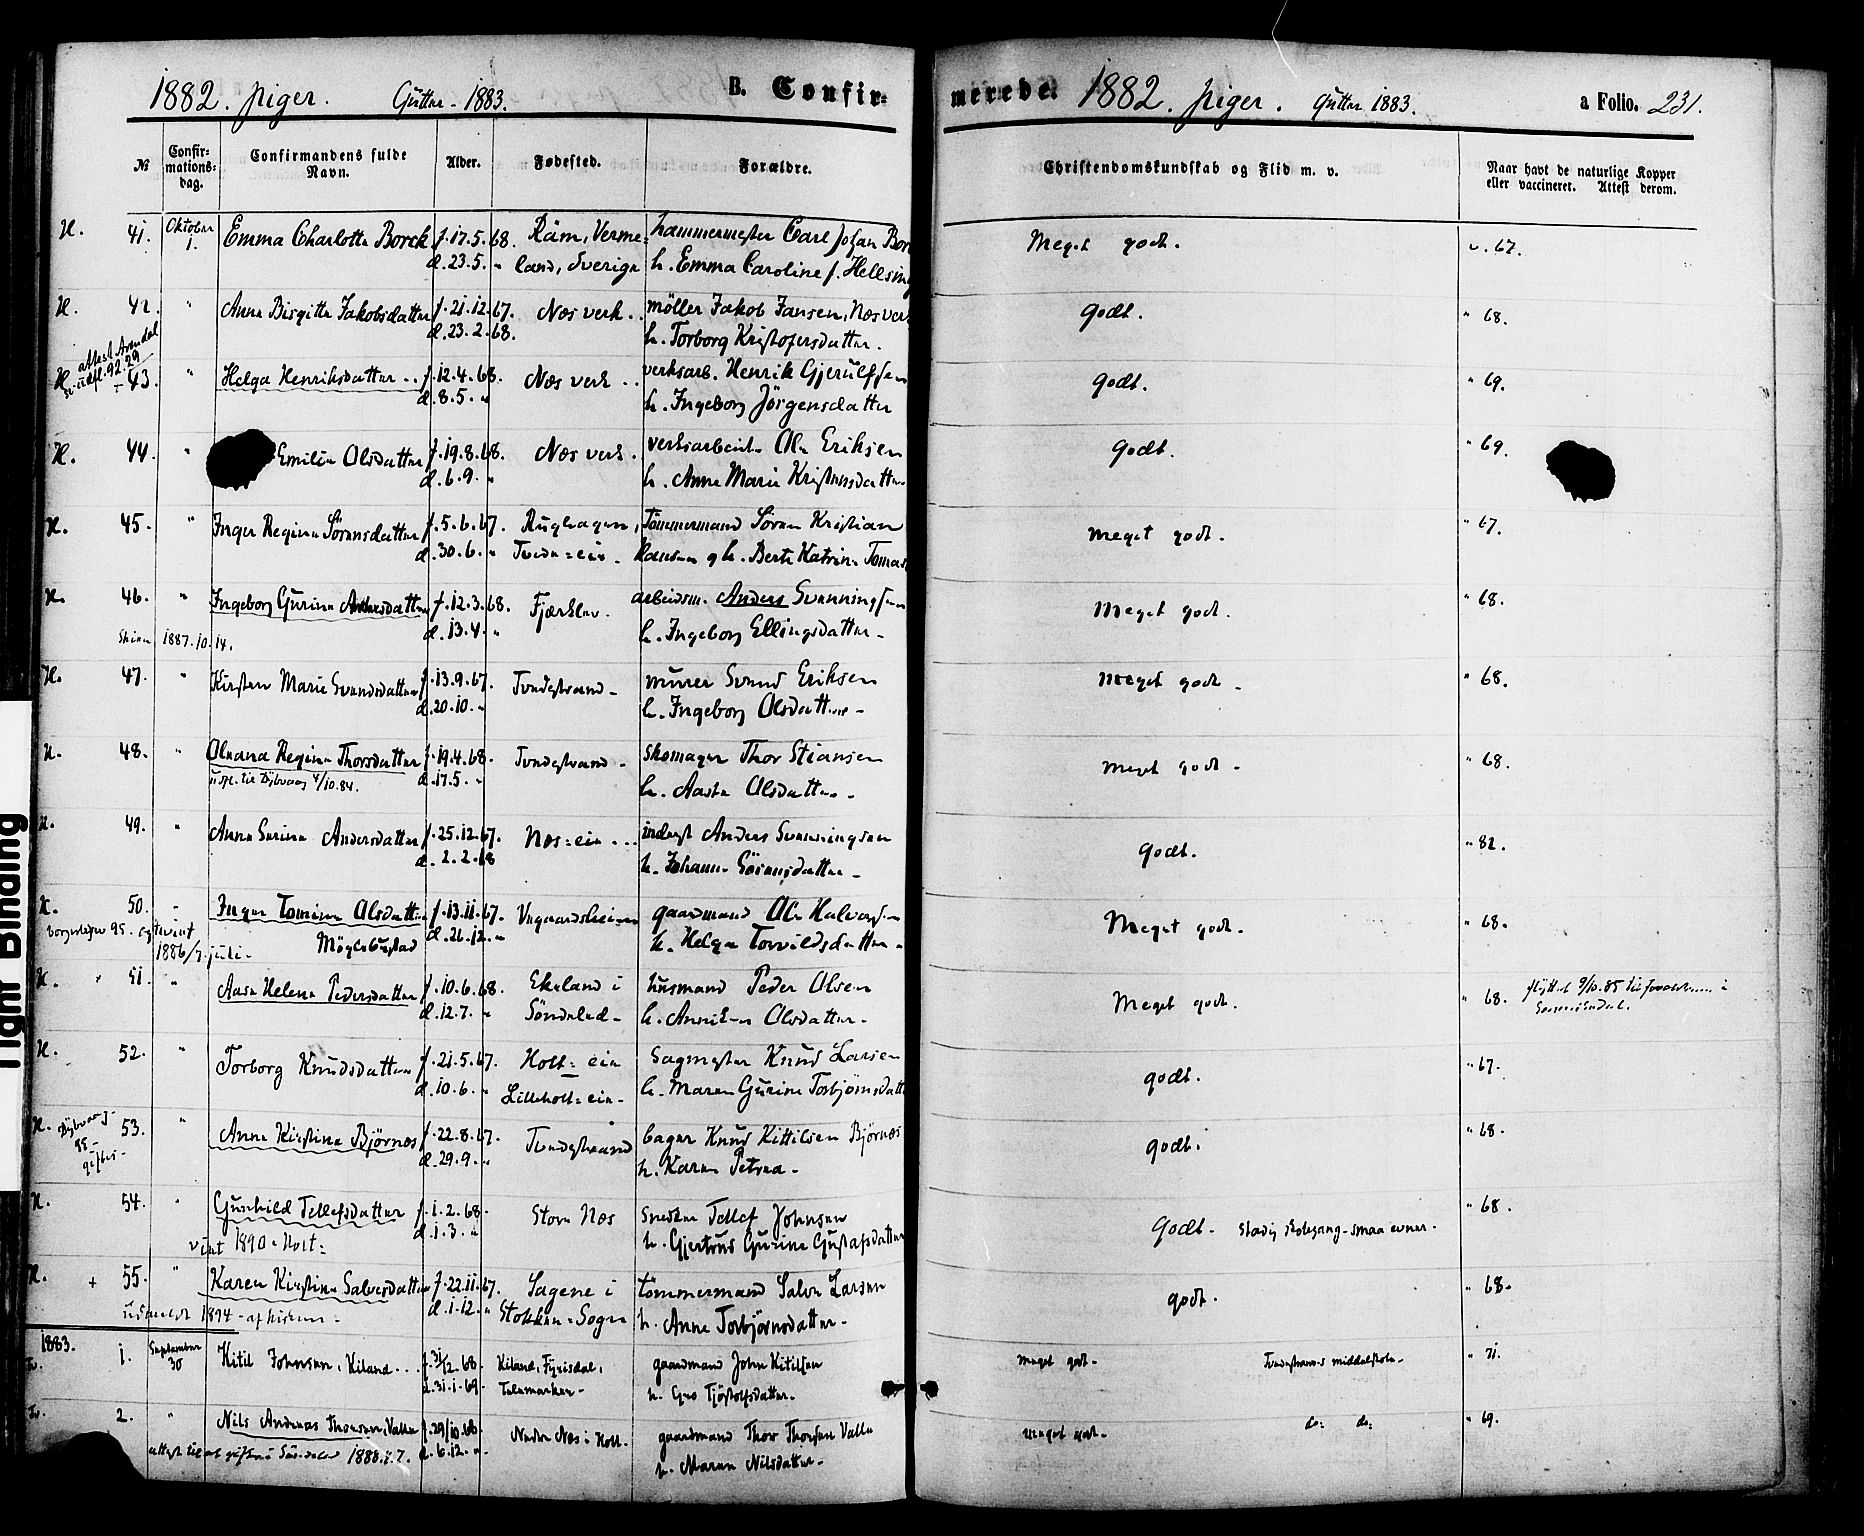 1882. piger. Gutter - 1883. B. Confir-
merede. 1882. piger. Gutter 1883. a Folio. 231.
№ Confirmations-dag. Confirmandens fulde Navn. Alder. Fødested. Forældre. Christendomskundskab og Flid m. v. Naar havt de naturlige Kopper eller vaccineret. Attest derom.
H. 41. Oktober 1. Emma Charlotte Borck f. 17.5.68. Räm, Verme= hammermester Carl Johan Bor Meget godt. v. 67.
d. 23.5. " land, Sverige h. Emma Caroline f. Hellsing
H. 42. " Anne Birgitte Jakobsdatter f. 21.12.67. Nœs verk.. möller Jakob Jansen, Nœs ver godt. " 68.
d. 23.2.68. h. Torborg Kristofersdatter.
attest Arendal
H. 92.29 + 43. " Helga Henriksdatter .. f. 12.4.68. Nœs verk .. verksarb. Henrik Gjerulfsen godt. " 69.
d. 8.5. " h. Ingeborg Jörgensdatter
H. 44. " Emilie Olsdatter f. 19.8.68. Nœs verk. verksarbeid. Ole Eriksen godt. " 69.
d. 6.9. " h. Anne Marie Kristensdatter
H. 45. " Inger Regine Sørensdatter f. 5.6.67. Rughagen, Tømmermand Søren Kristian meget godt. " 67.
d. 30.6. " Tvede=ein. Hansen og h. Berte Katrine Tomas
H. 46. " Ingeborg Gurine Andersdatter f. 12.3.68. Fjærklev. arbeidsm. Anders Svenningsen Meget godt. " 68.
Skien 1887.10.14. d. 13.4. " h. Ingeborg Ellingsdatter-
H. 47. " Kirsten Marie Svendsdatter f. 13.9.67. Tvedestrand- murer Svend Eriksen meget godt - " 68.
d. 20.10. " h. Ingeborg Olsdatter-
H. 48. " Oleana Regine Thorsdatter f. 19.4.68. Tvedestrand- skomager Thor Stiansen meget godt - " 68.
udfl. til Dybvaag 4/10.84. d. 17.5. " h. Aaste Olsdatter.
H. 49. " Anne Serine Andersdatter f. 25.12.67. Nœs=ein ... inderst Anders Svenningsen godt. " 82.
d. 2.2.68 h. Johanne Sörensdatter-
H. 50. " Inger Tomine Olsdatter f. 13.11.67. Vegaardsheien gaardmand Ole Halvorsen Meget godt. " 68.
95. Møglebustad d. 26.12. " h. Helge Torvildsdatter-
1886/7. juli.
H. + 51. " Aase Helene Pedersdatter f. 10.6.68. Ekeland i husmand Peder Olsen Meget godt. " 68. flyttet 9/10.85 til i
d. 12.7. " Söndeled- h. Anniken Olsdatter-
H. 52. " Torborg Knudsdatter f. 21.5.67. Holt=ein Sagmester Knud Larsen godt. " 67-
d. 10.6. " Lilleholt=ein- h. Maren Gurine Torbjørnsdatt
H. Dybvaag- 53. " Anne Kirstine Bjørnœs f. 22.8.67. Tvedestrand bager Knud Kittilsen Bjørnœs godt. " 68-
95- giftes- d. 29.9. " h. Karen Petrea-
H. 54. " Gunhild Tellefsdatter f. 1.2.68. Store Nœs snedker Tellef Johnsen Godt- stadig skolegang-smaa evner- " 68.
viet 1890 - Holt= d. 1.3. " h. Gjertrud Gurine Gustafsdatter
H. + 55. " Karen Kirstine Salvesdatter f. 22.11.67. Sagene i tømmermand Salve Larsen godt. " 68-
udmeldt 1894 - d. 1.12. " Stokken=Sogn h. Anne Torbjörnsdatter-
1883.
Tv. 1. September 30 Kitil Johnsen, Kiland... f. 31/12.68- Kiland, Fyrisdal, gaardmand John Kitilsen meget godt- Tvedestrands middelskole- " 71.
d. 31.1.69- Telemarken- h. Gro Tjöstolfsdatter.
Tv. 2. " Nils Andreas Thorsen, Valle f. 29/10.68- Nedre Nœs i Holt. gaardmand Thor Thorsen Valle meget godt- do: do: " 69.
attest til at giftes i Söndeled 1888.1.7. d. 6.12. " h. Maren Nilsdatter-
Tight Binding